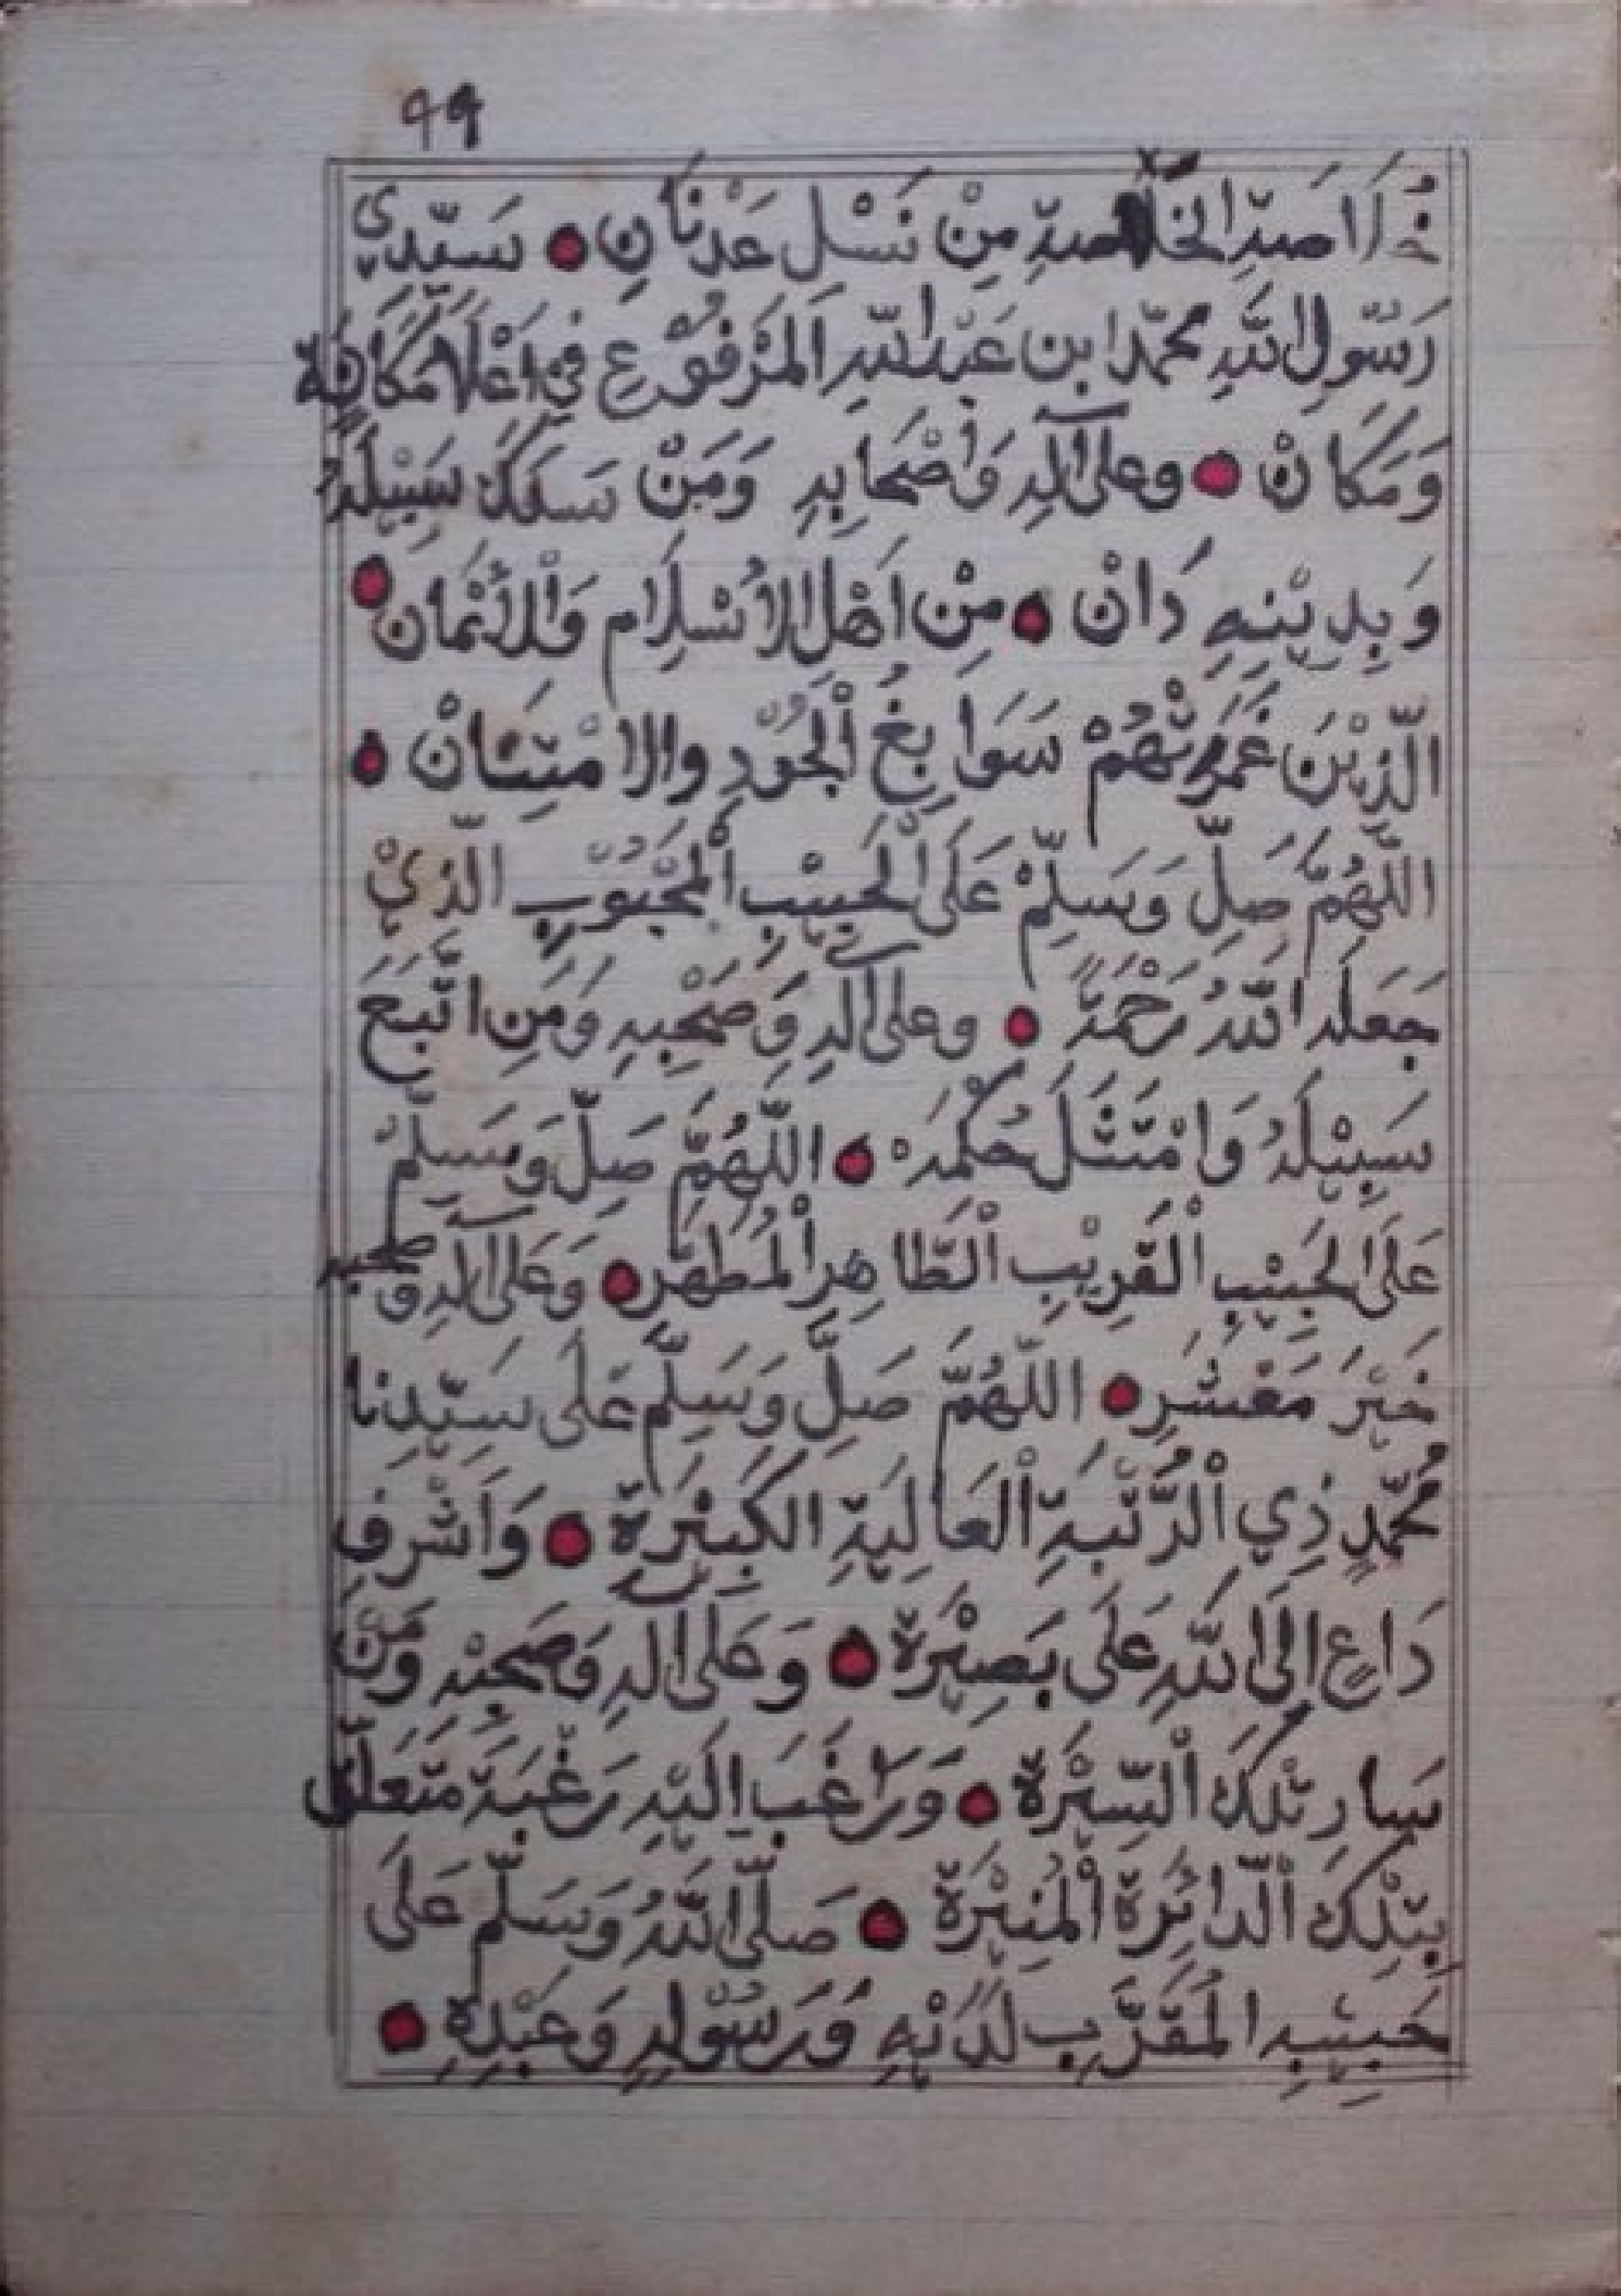 ٩٩
خُلَاصَةِ الخُلَاصَةِ مِنْ نَسْلِ عَدْنَانِ ۰ سَيِّدِي
رَسُوْلِ اللهِ مُحَمَّد ابن عَبْدِ اللهِ المَرْفُوْعِ فِي اَعْلَا مَكَانَةٍ
وَمَكَانْ ۰ وعلى آلِهِ وَاَصْحَابِهِ وَمَنْ سَلَكَ سَبِيْلَهُ
وَبِدِيْنِهِ دَانْ ۰ مِنْ اَهْلِ الاِسْلَامِ وَالْاِيْمَانْ ۰
الَّذِيْنَ غَمَرَتْهُمْ سَوَابِغُ الْجُوْدِ والامْتِنَانْ ۰
اللَّهُمَّ صَلِّ وَسَلِّمْ عَلَى الْحَبِيْبِ الْمَحْبُوْبِ الَّذِيْ
جَعَلَهُ اللهُ رَحْمَةً ۰ وعلى آلِهِ وَصَحْبِهِ وَمَنِ اتَّبَعَ
سَبِيْلَهُ وَامْتَثَلَ حُكْمَهْ ۰ اللَّهُمَّ صَلِّ وَسَلِّمْ
عَلَى الحَبِيْبِ الْقَرِيْبِ الْطَّاهِرِ الْمُطَهَّرِ ۰ وَعَلَى آلِهِ وَصَحْبِهِ
خَيْرَ مَعْشَرِ ۰ اللَّهُمَّ صَلِّ وَسَلِّمْ عَلَى سَيِّدِنَا
مُحَمَّدٍ ذِي الْرُّتْبَةِ الْعَالِيَةِ الكَبِيْرَةْ ۰ وَاَشْرَفِ
دَاعٍ اِلَى اللهِ عَلَى بَصِيْرَةْ ۰ وَعَلَى آلِهِ وَصَحْبِهِ وَمَنْ
سَارِ تِلْكَ الْسِّيْرَةْ ۰ وَرَاغَبَ اِلَيْهِ رَغْبَةَ مُتَعَلِّقٍ
بِتِلْكَ الْدَّائِرَةْ الْمُنِيْرَةْ ۰ صَلَّى اللهُ وَسَلَّم عَلَى
حَبِيْبِهِ المُقَرَّبِ لَدَيْهِ وَرَسُوْلِهِ وَعَبْدِهِ ۰